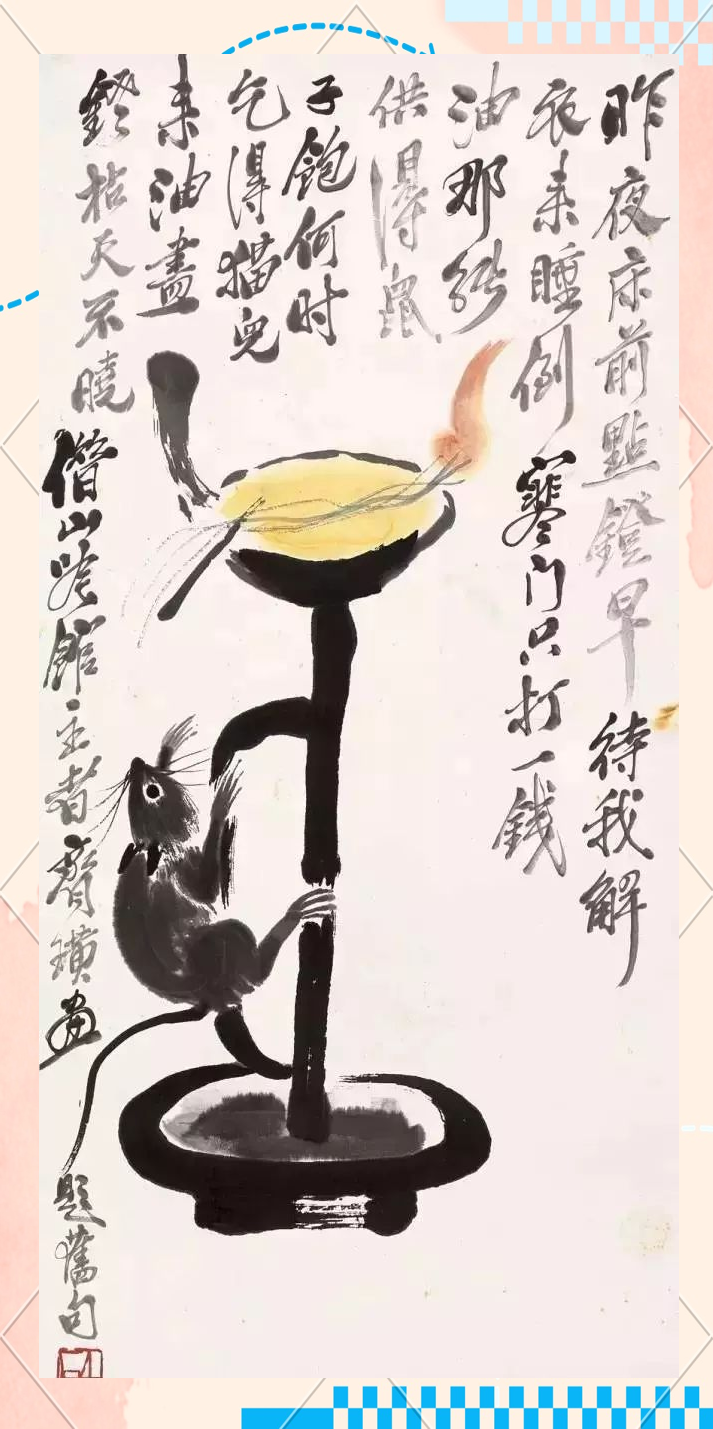 昨夜床前點鐙早待我解
衣來睡倒寒門只打一錢
油那能
供得鼠
子飽何时
乞得猫兒
來油盡
鐙枯天不曉
借山吟館主者齊璜畫
題舊句